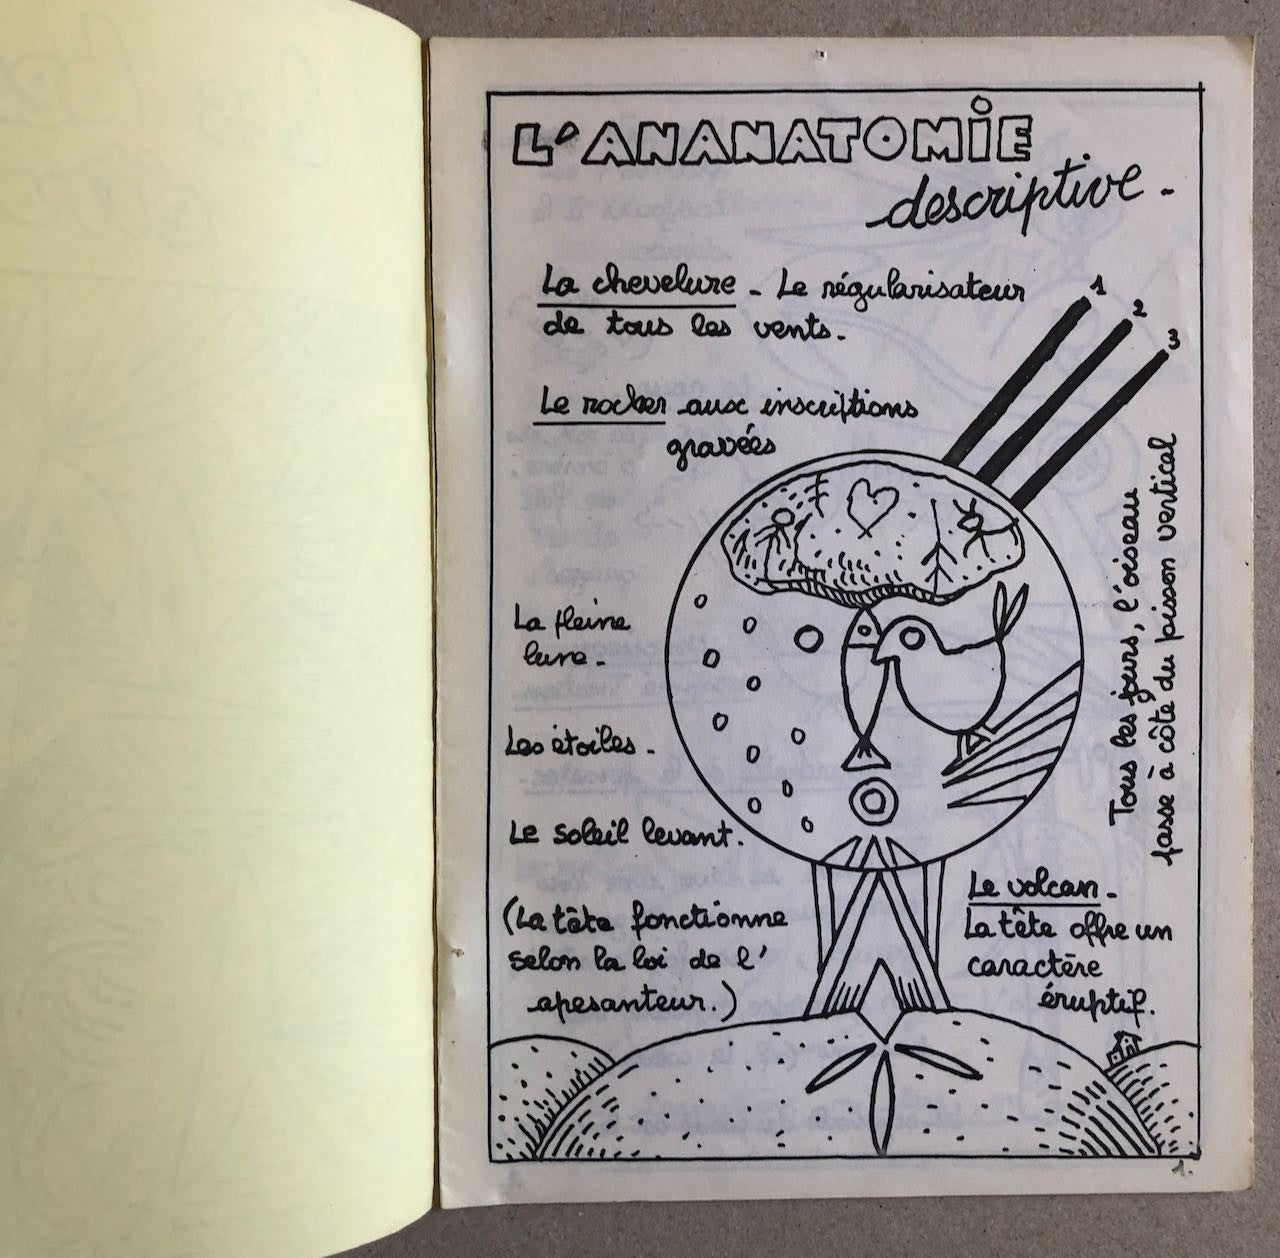 L'ANANATOMIE
descriptive -
La chevelure - Le régularisateur
de tous les vents.
1
2
3
Le rocher aux inscriptions
gravées
La pleine
lune -
Les étoiles -
Le soleil levant.
(La tête fonctionne
selon la loi de l'
apesanteur.)
Tous les jours, l'oiseau
passe à côté du poisson vertical
Le volcan -
La tête offre un
caractère
éruptif.
1.